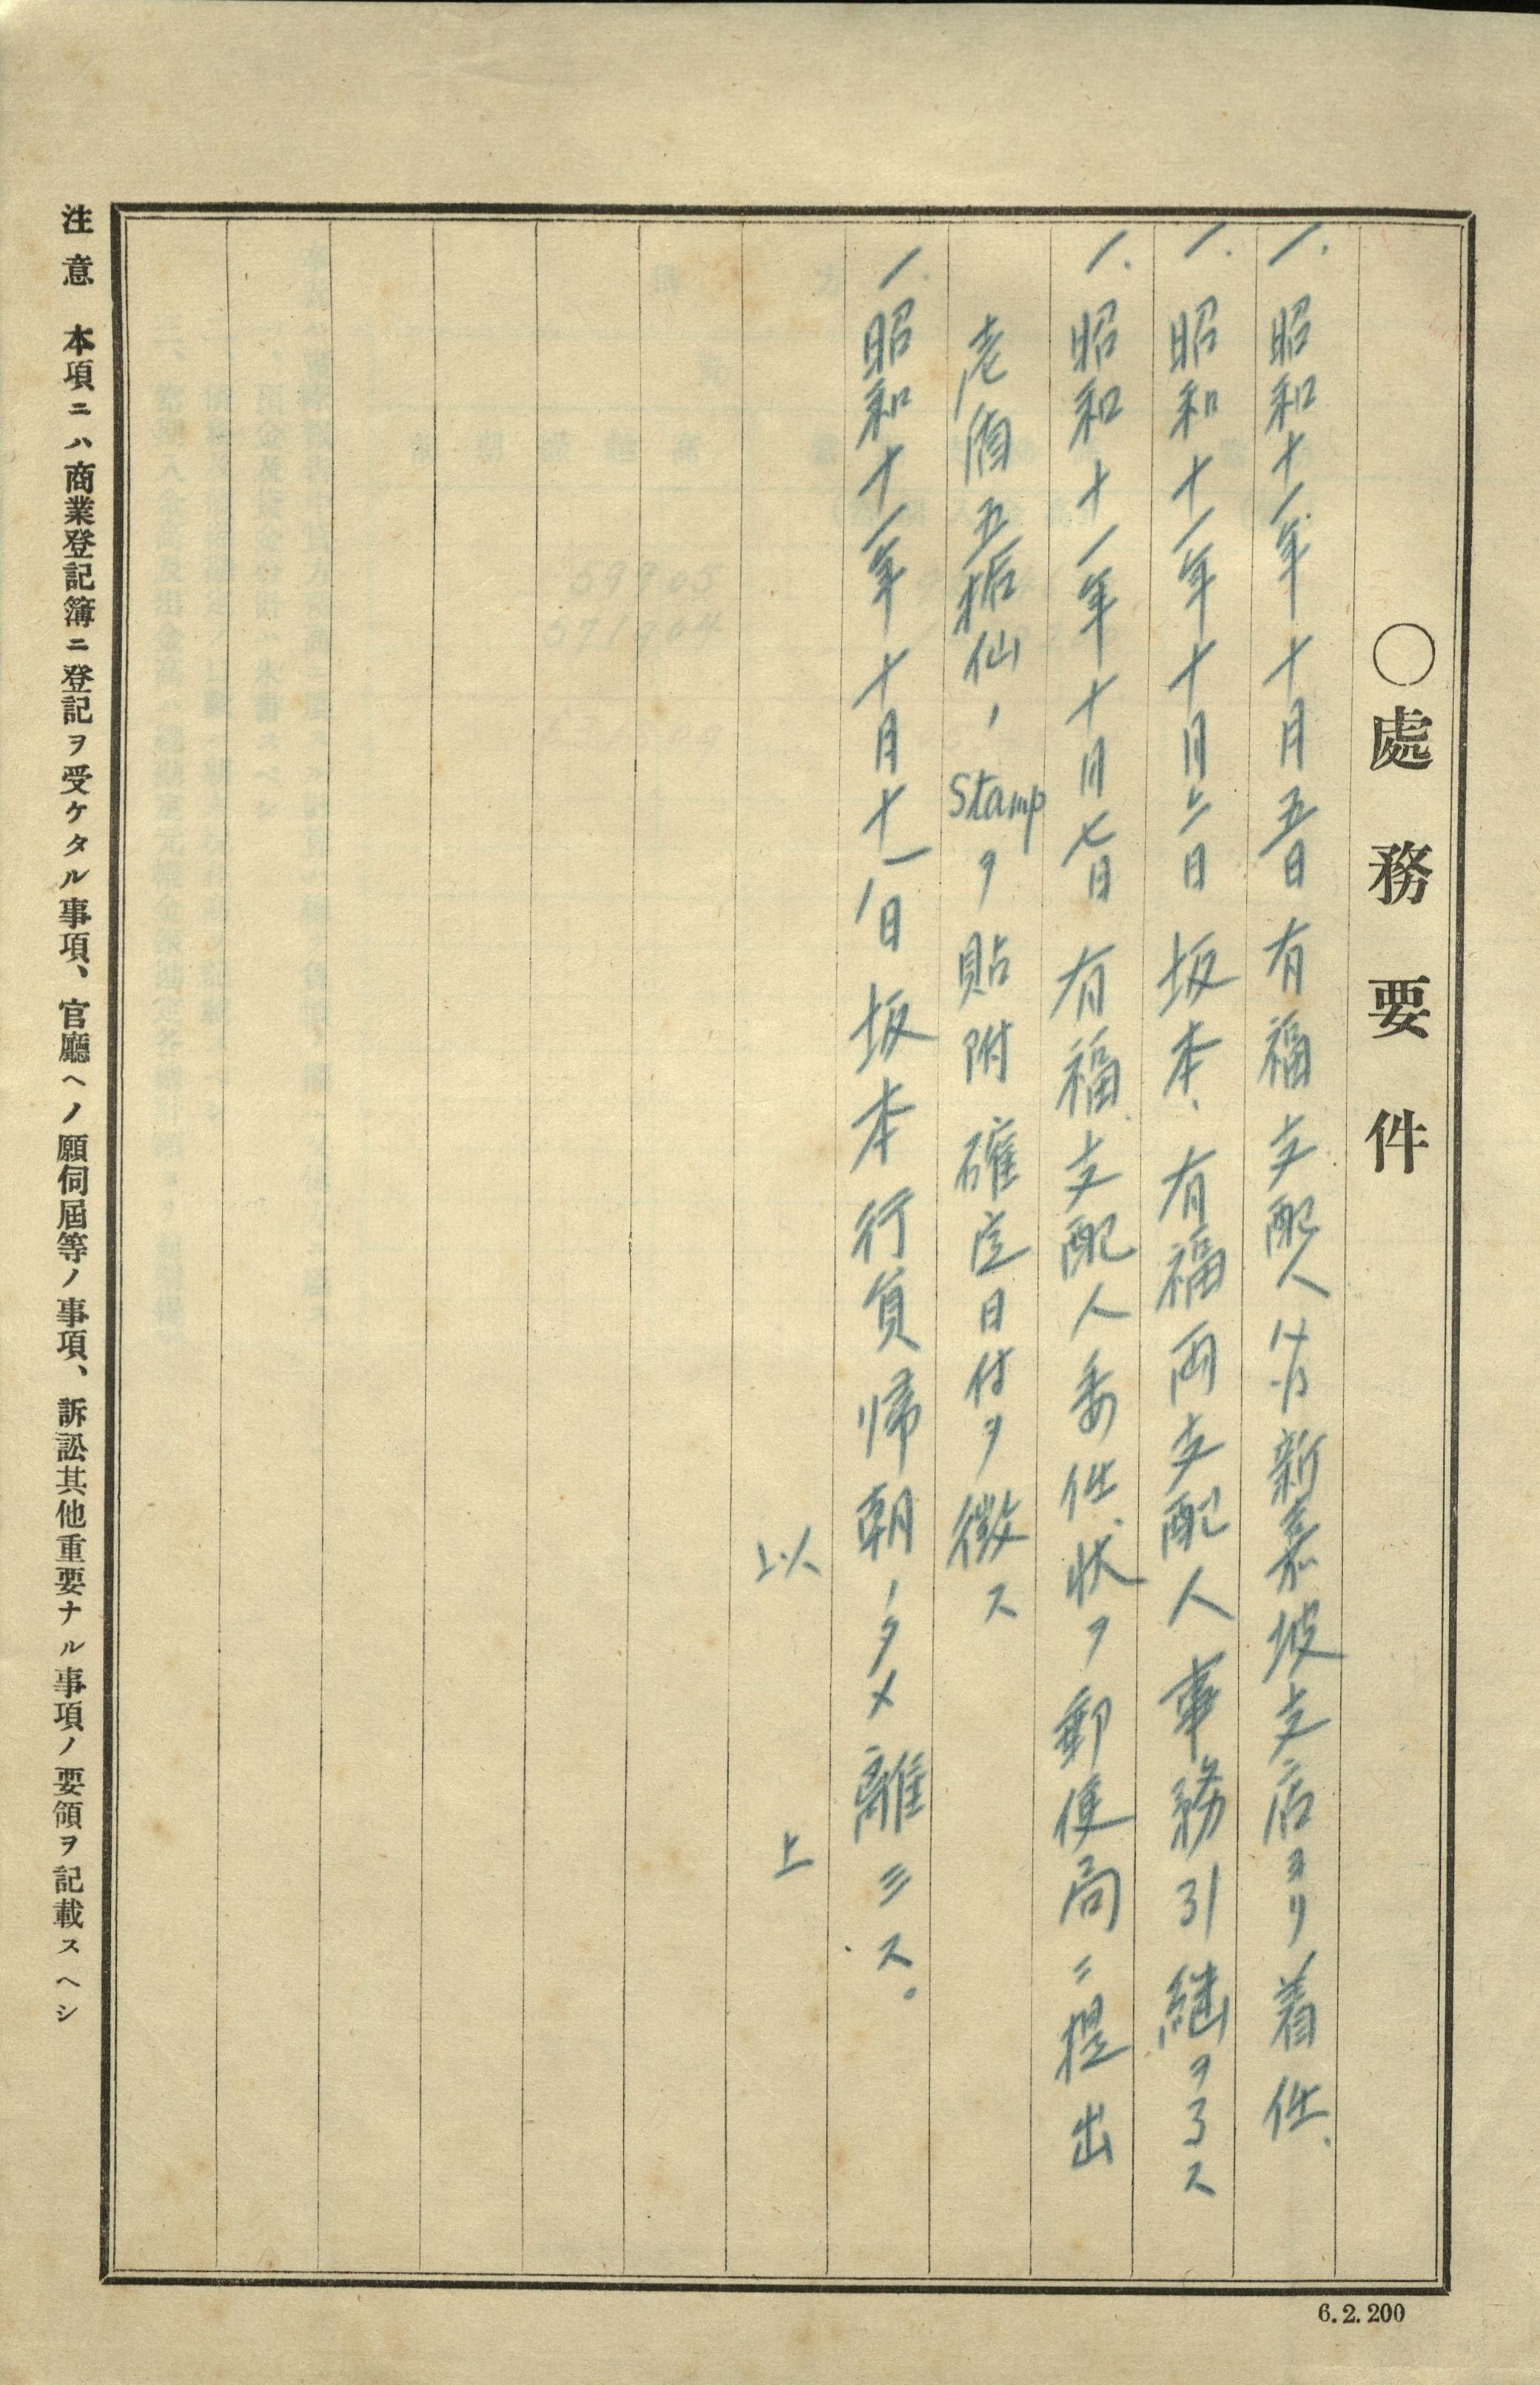 〇處務要件
一、昭和十一年十月五日有福支配人 新嘉坡支店ヨリ着任、
一、昭和十一年十月六日坂本、有福両支配人事務引継ヲ了ス
一、昭和十一年十月七日有福支配人委任状ヲ郵便局ニ提出
壱盾五拾仙ノStampヲ貼附確定日付ヲ徴ス
一、昭和十一年十月十一日坂本行員帰朝ノタメ離ミス。
以上
注意 本項ニハ商業登記簿ニ登記ヲ受ケタル事項、官廳ヘノ願伺屆等ノ事項、訴訟其他重要ナル事項ノ要領ヲ記載スヘシ
6.2.200